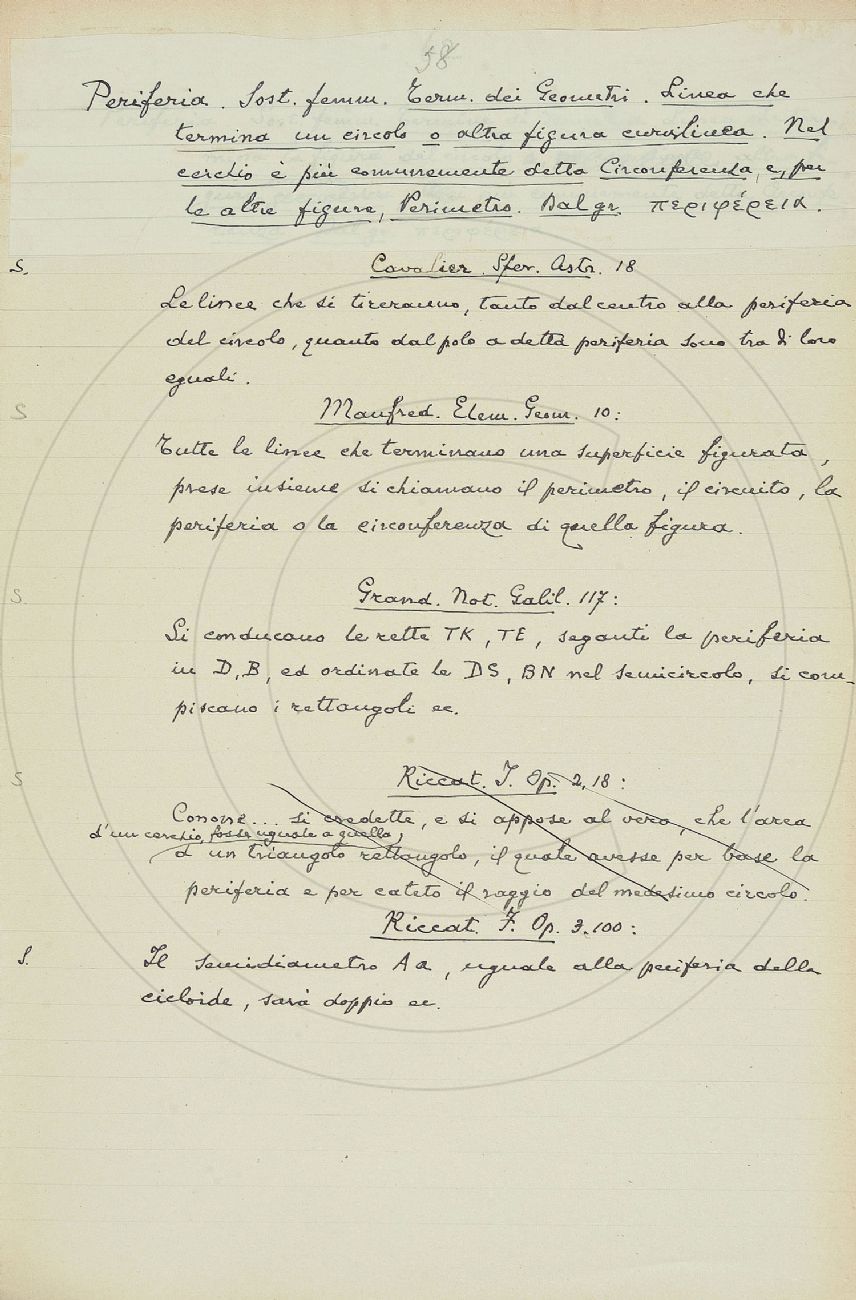 58
Periferia. Sost. femm. Term. dei Geometri. Linea che
termina un circolo o altra figura curvilinea. Nel
cerchio è più comunemente detta Circonferenza, e, per
le altre figure, Perimetro. Dal gr. περιφέρεια.
S. Cavalier. Sfer. Astr. 18
Le linee che si tireranno, tanto dal centro alla periferia
del circolo, quanto dal polo a detta periferia sono tra di loro
eguali.
S Manfred. Elem. Geom. 10:
Tutte le linee che terminano una superficie figurata,
prese insieme si chiamano il perimetro, il circuito, la
periferia o la circonferenza di quella figura.
S Grand. Not. Galil. 117:
Si conducano le rette TK, TE, seganti la periferia
in D, B, ed ordinate le DS, BN nel semicircolo, si com-
piscano i rettangoli ec.
S Riccat. J. Op. 2, 18:
Conone... si credette, e si appose al vero, che l'area
d'un cerchio, fosse uguale a quella,
d'un triangolo rettangolo, il quale avesse per base la
periferia e per cateto il raggio del medesimo circolo.
Riccat. J. Op. 3. 100:
S. Il semidiametro Aa, uguale alla periferia della
cicloide, sarà doppio ec.